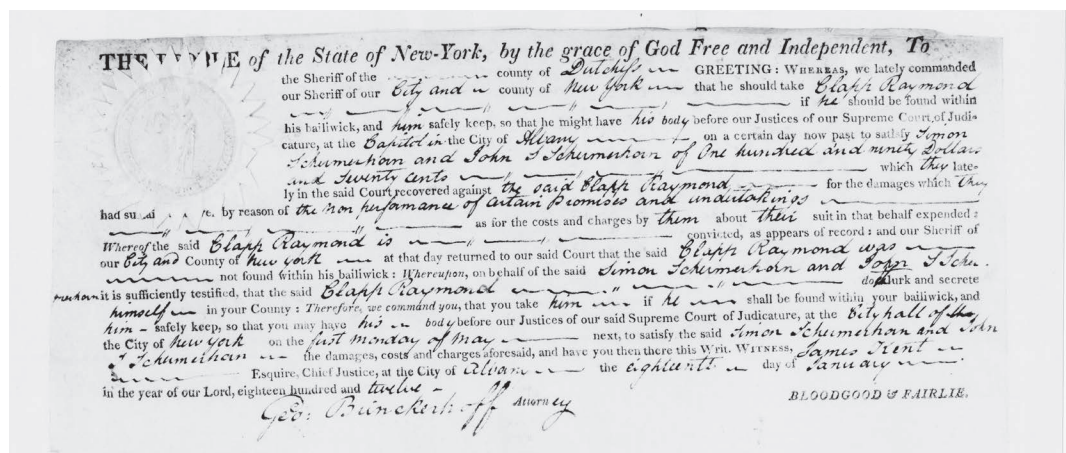 THE PEOPLE of the State of New-York, by the grace of God Free and Independent, To
the Sheriff of the county of Dutchess GREETING: WHEREAS, we lately commanded
our Sheriff of our City and county of New York that he should take Clapp Raymond
if he should be found within
his bailiwick, and him safely keep, so that he might have his body before our Justices of our Supreme Court of Judi-
cature, at the Capitol in the City of Albany on a certain day now past to satisfy Simon
Schermerhorn and John S Schermerhorn of One hundred and ninety Dollars
and Seventy cents which they late-
ly in the said Court recovered against the said Clapp Raymond for the damages which they
had by reason of the non performance of certain promises and undertakings
as for the costs and charges by them about their suit in that behalf expended:
Whereof the said Clapp Raymond is convicted, as appears of record: and our Sheriff of
our City and County of New York at that day returned to our said Court that the said Clapp Raymond was
not found within his bailiwick: Whereupon, on behalf of the said Simon Schermerhorn and John S Scher-
merhorn it is sufficiently testified, that the said Clapp Raymond lurk and secrete
himself in your County: Therefore, we command you, that you take him if he shall be found within your bailiwick, and
him - safely keep, so that you may have his body before our Justices of our said Supreme Court of Judicature, at the City hall of the
the City of New York on the first Monday of May next, to satisfy the said Simon Schermerhorn and John
S Schermerhorn the damages, costs and charges aforesaid, and have you then there this Writ. WITNESS, James Kent
Esquire, Chief Justice, at the City of Albany the eighteenth day of January
in the year of our Lord, eighteen hundred and twelve -
Geo: Brinckerhoff Attorney
BLOODGOOD & FAIRLIE.